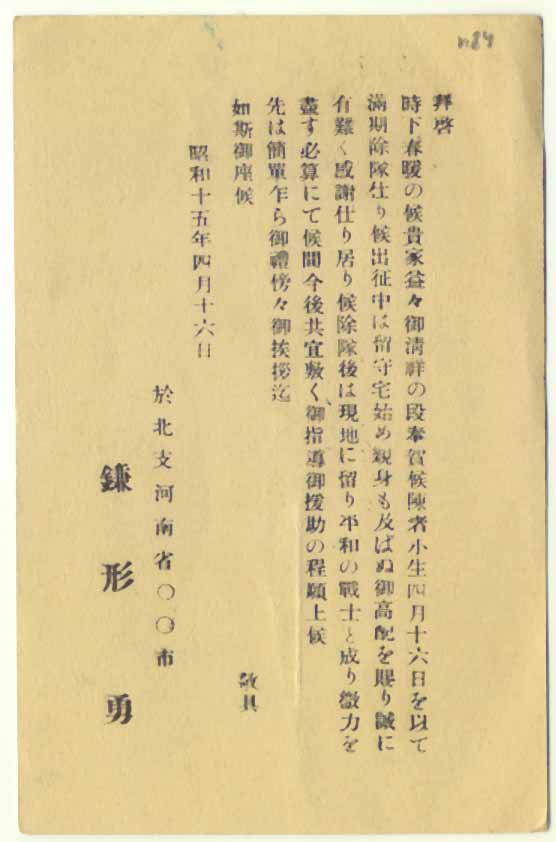 n84
拝啓
時下春暖の候貴家益々御淸祥の段奉賀候陳者小生四月十六日を以て
滿期除隊仕り候出征中は留守宅始め親身も及ばぬ御高配を賜り誠に
有難く感謝仕り居り候除隊後は現地に留り平和の戰士と成り微力を
盡す必算にて候間今後共宜敷く御指導御援助の程願上候
先は簡單乍ら御禮傍々御挨拶迄
如斯御座候
敬具
昭和十五年四月十六日
於北支河南省〇〇市
鎌形勇